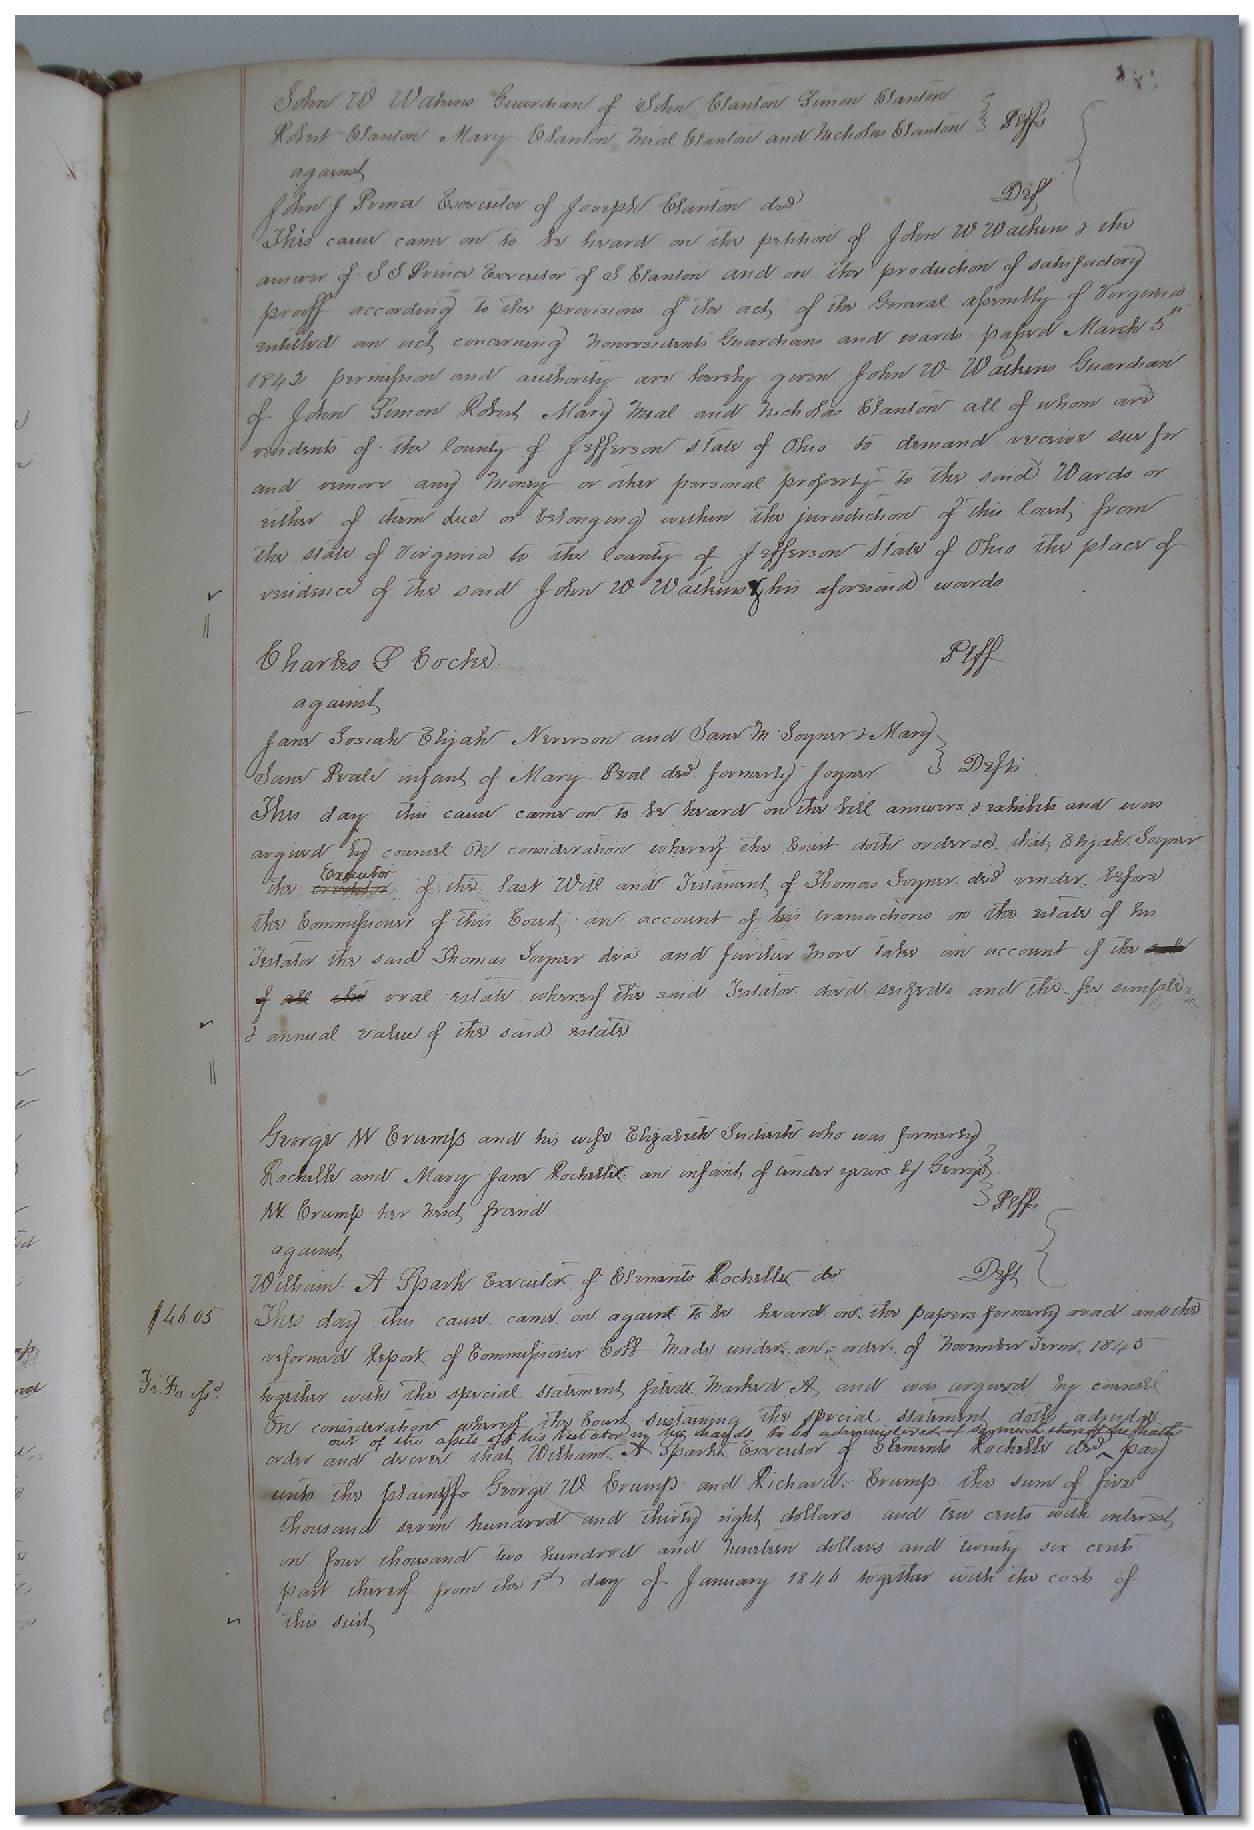 John W Watkins Guardian of John Clanton Simon Clanton
Robert Clanton Mary Clanton Neal Clanton and Nicholas Clanton Plffs
against
John J Prince Executor of Joseph Clanton decd Deft
This cause came on to be heard on the petition of John W Watkins & the
answer of J J Prince Executor of J Clanton and on the production of satisfactory
prooff according to the provisions of the act of the General assembly of Virginia
entitled an act concerning Nonresidents Guardians and wards passed March 5th
1842 permission and authority are hereby given John W Watkins Guardian
of John Simon Robert Mary Neal and Nicholas Clanton all of whom are
residents of the County of Jefferson State of Ohio to demand receive sue for
and remove any Money or other personal property to the said Wards or
either of them due or belonging within the jurisdiction of this Court from
the state of Virginia to the County of Jefferson State of Ohio the place of
residence of the said John W Watkins & his aforesaid wards
Charles G Cocke Plff
against
Jane Josiah Elijah Neverson and Jane M Joyner & Mary
Jane Peale infant of Mary Peal decd formerly Joyner Defts
This day this cause came on to be heard on the bill answers & exhibits and was
argued by counsel On consideration whereof the Court doth order &c that Elijah Joyner
the Executor of the last Will and Testament of Thomas Joyner decd render before
the Commissioner of this Court an account of his transactions on the estate of his
Testator the said Thomas Joyner decd and further more take an account of the
of all the real estate whereof the said Testator died seized and the fee simple
& annual value of the said estate
George W Crump and his wife Elizabeth who was formerly
Rochelle and Mary Jane Rochelle an infant of under years by George
W Crump her next friend Plffs
against
William A Spark Executor of Clements Rochelle dec Deft
$46.05
This day this cause came on again to be heard on the papers formerly read and the
reformed Report of Commissioner Cobb made under an order of November Term 1845
Fi. Fa. issd
together with the special statement filed Marked A and was argued by counsel
On consideration whereof the Court sustaining the special statement doth adjudge
out of the assets of his testator in his hands to be administered if so much thereof he hath
order and decree that William A Spark Executor of Clements Rochelle decd pay
unto the plaintiffs George W Crump and Richard Crump the sum of five
thousand seven hundred and thirty eight dollars and ten cents with interest
on four thousand two hundred and nineteen dollars and twenty six cents
part thereof from the 1st day of January 1846 together with the costs of
this suit